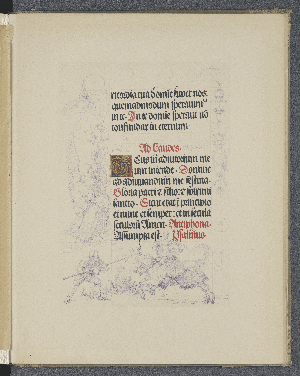 ricordia tua domine super nos
quemadmodum speravimus
in te. In te domine speravi nō
confundar in eternum.
Ad Laudes.
Deus in adiutorium me
um intende. Domine
ad adiuvandum me festina.
Gloria patri et filio et spiritui
sancto. Sicut erat in principio
et nunc et semper: et in secula
seculorum Amen. Antiphona
Assumpta est. Psalmus.